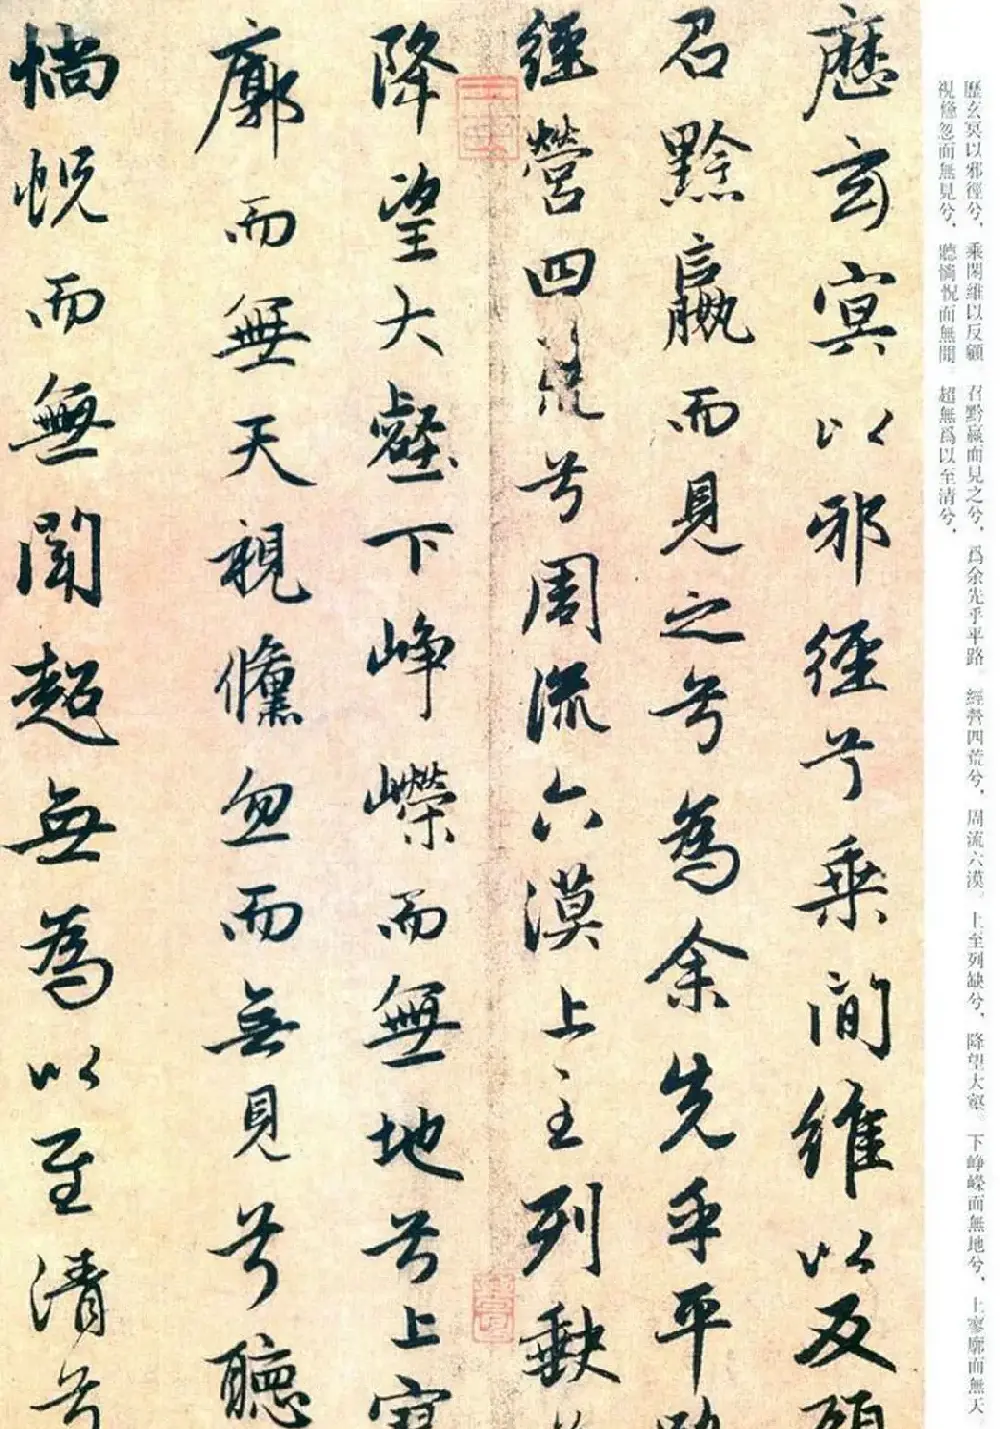 歷玄冥以邪徑兮乘間維以反顧
召黔嬴而見之兮為余先乎平路
經營四荒兮周流六漠上至列缺兮
降望大壑下崢嶸而無地兮上寥
廓而無天視儵忽而無見兮聽
惝怳而無聞超無為以至清兮
歷玄冥以邪徑兮，乘間維以反顧。召黔嬴而見之兮，爲余先乎平路。經營四荒兮，周流六漠。上至列缺兮，降望大壑。下崢嶸而無地兮，上寥廓而無天。
視儵忽而無見兮，聽惝怳而無聞。超無爲以至清兮，